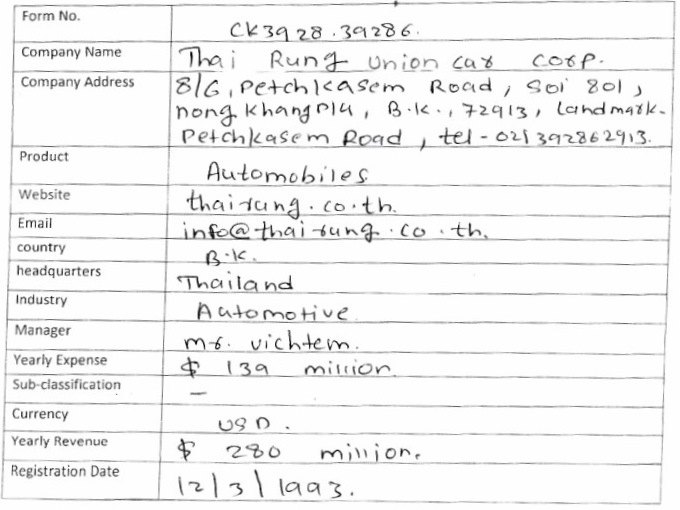 Form No. CK3928.39286.
Company Name Thai Rung Union car corp.
Company Address 8/6, Petchkasem Road, Soi 801,
nong khangplu, B.K., 72913, landmark-
Petchkasem Road, tel-021392862913.
Product Automobiles
Website thairung.co.th.
Email info@thairung.co.th.
country B.K.
headquarters Thailand
Industry Automotive
Manager mr. vichtem.
Yearly Expense $ 139 million
Sub-classification —
Currency USD.
Yearly Revenue $ 280 million.
Registration Date 12/3/1993.